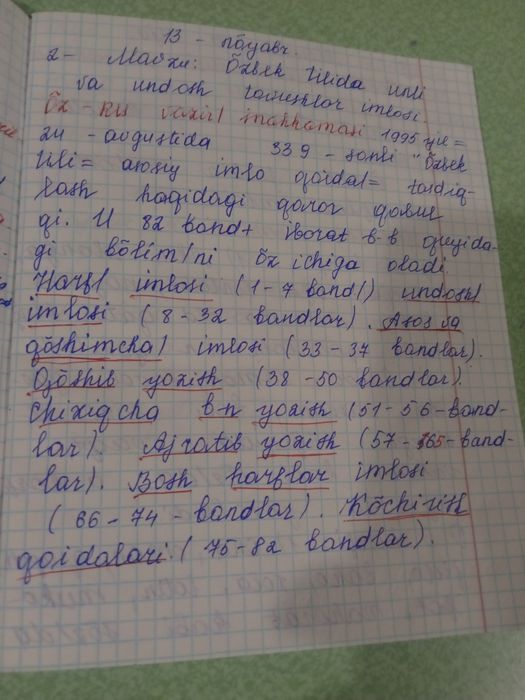 13 - noyabr.
2- Mavzu: Õzbek tilida unli
va undosh tovushlar imlosi.
Õz-RU vazir/ mahkamasi 1995 yil=
24 - avgustida 339 - sonli "Õzbek
tili= asosiy imlo qoidal= tasdiq-
lash haqidagi qaror qabul
qi. U 82 band+ iborat b-b quyida-
gi bõlim/ni õz ichiga oladi.
Harf/ imlosi (1-7 band/) undosh/
imlosi (8-32 bandlar). Asos va
qõshimcha/ imlosi (33-37 bandlar).
Qõshib yozish (38-50 bandlar).
Chiziqcha b-n yozish (51-56-band-
lar). Ajratib yozish (57-65-band-
lar). Bosh harflar imlosi
(66-74-bandlar). Kõchirish
qoidalari. (75-82 bandlar).